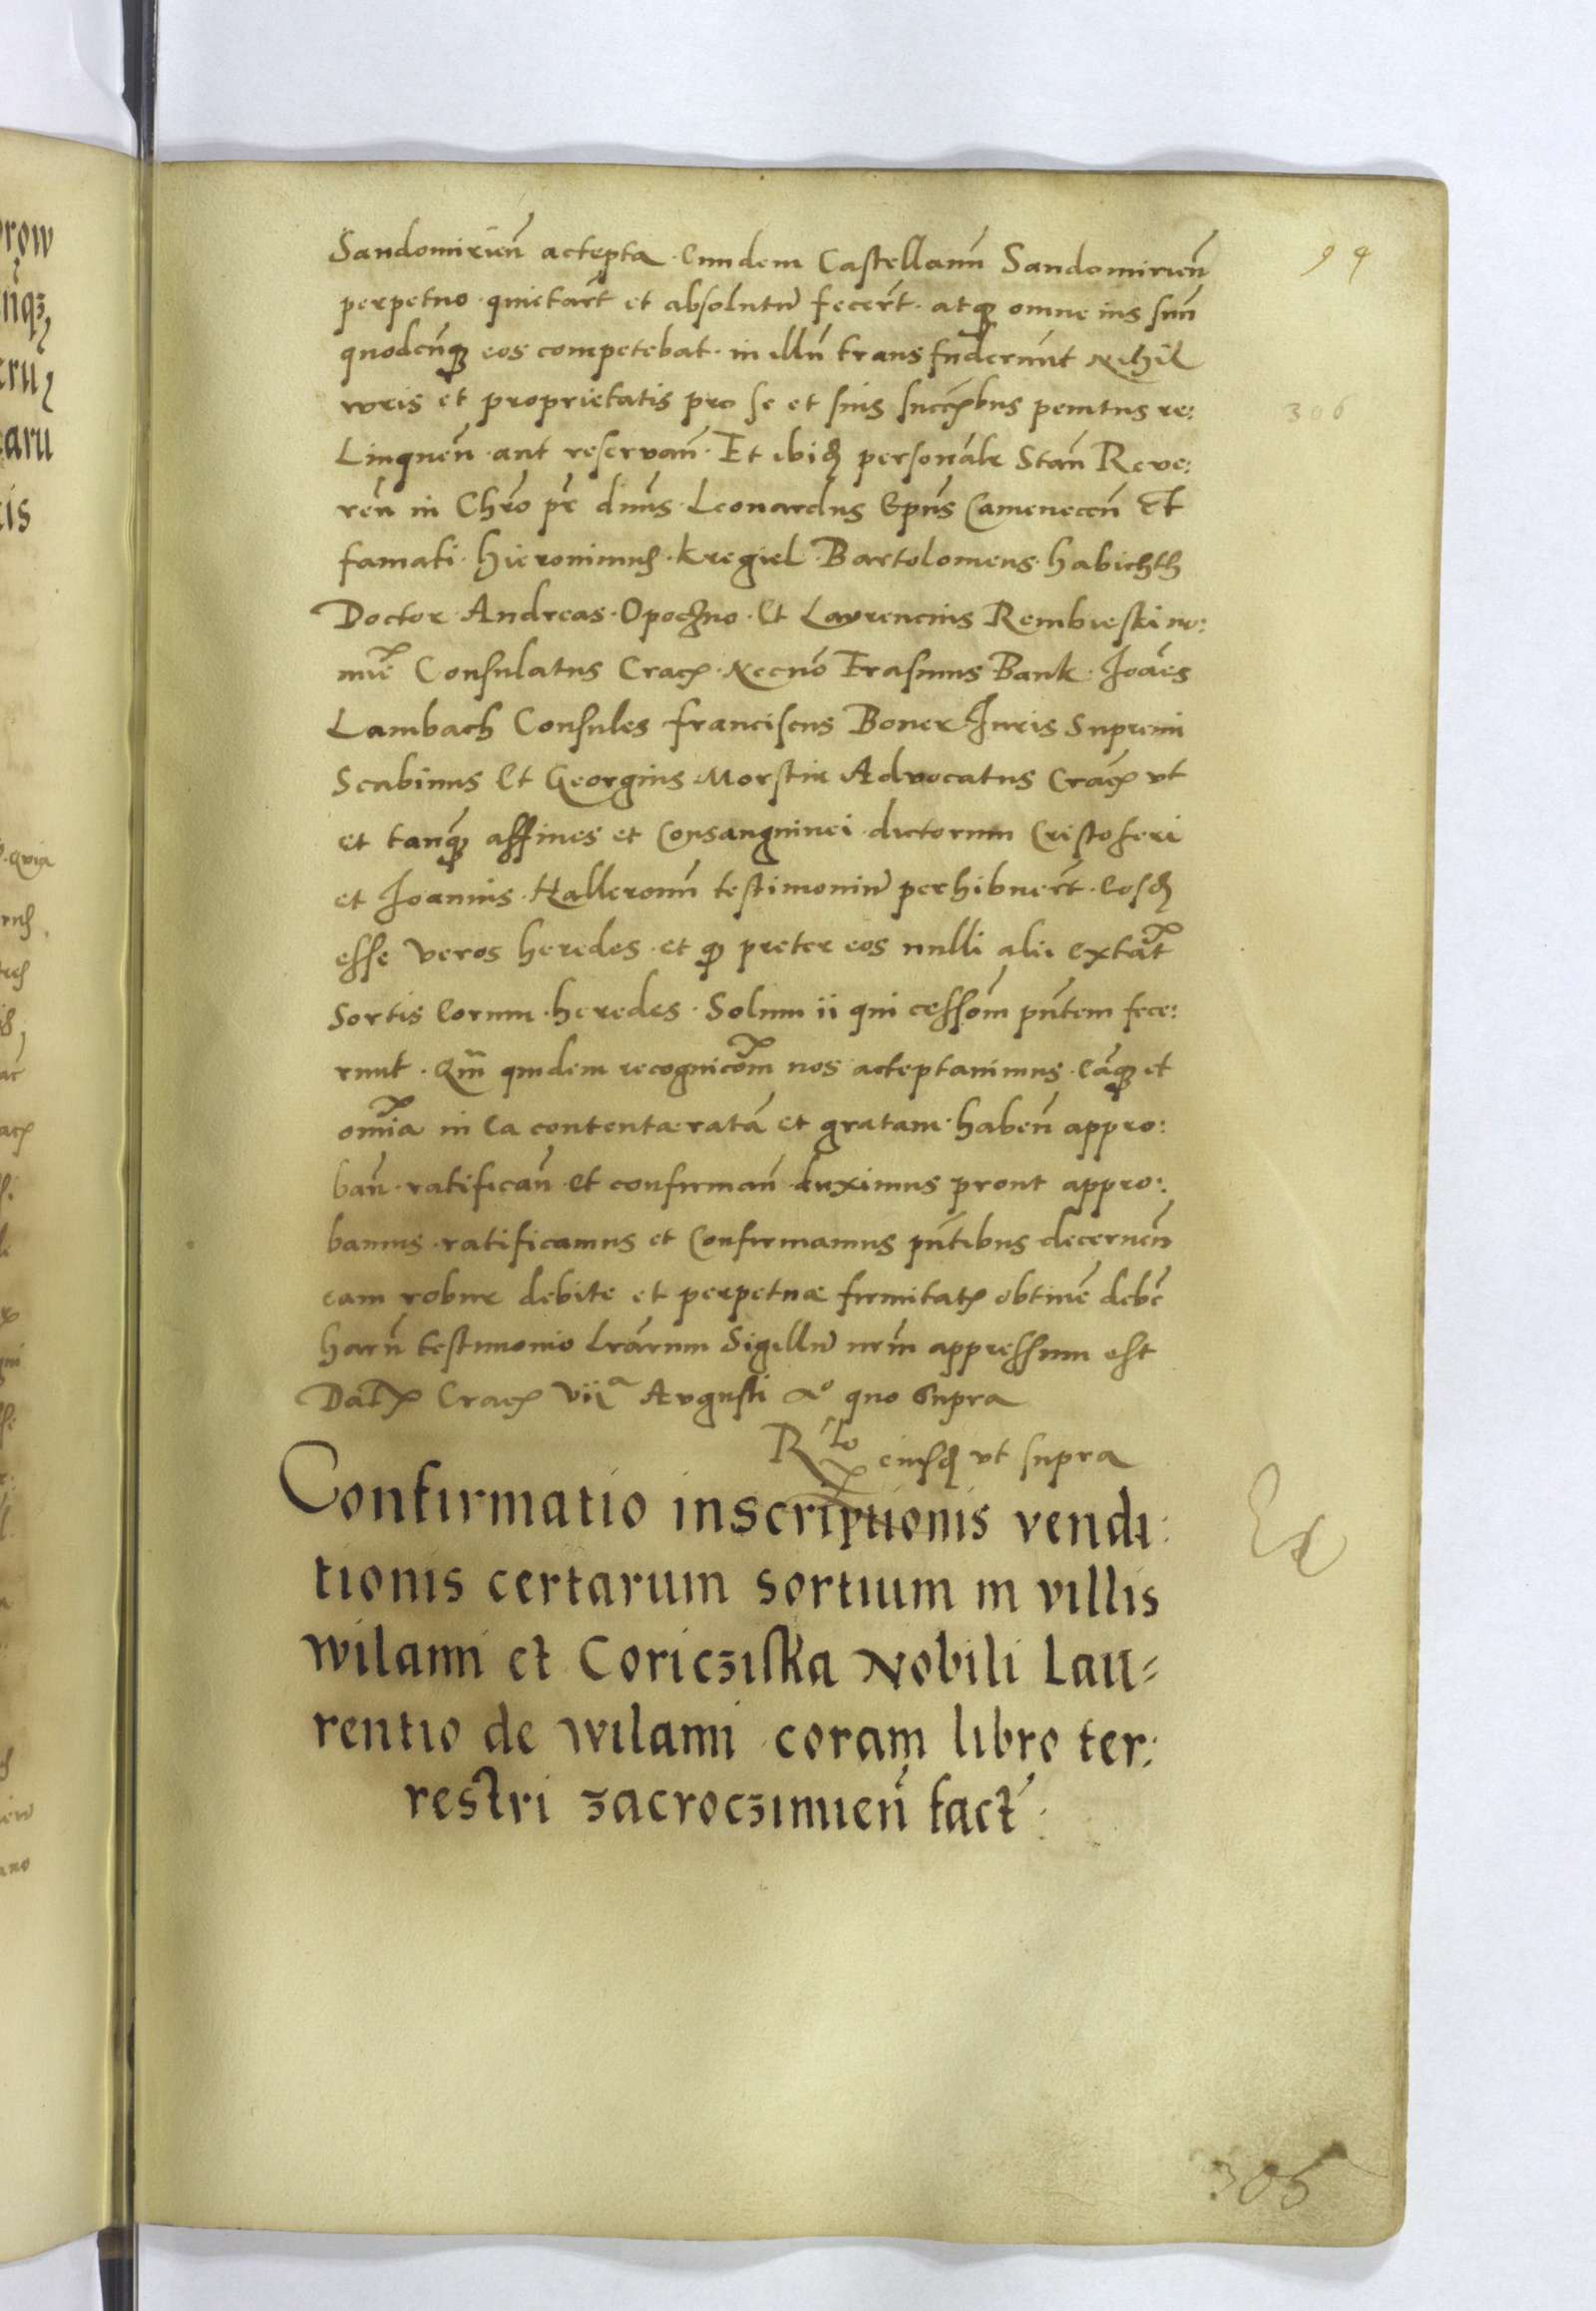 Sandomirien̄ acceptа eundem Castellanū Sandomirien̄
94
perpetuo quietar̄t et absolutū fecer̄t atq₃ omne ius suū
quodcūq₃ eos competebat in illū transfuderunt Nihil
iuris et proprietatis pro se et suis succ̄ꝝbus penitus re:
306
Linquen̄ aut reservan̄ Et ibid₃ personalr̄ Stan̄ Reve:
ren̄ in Chr̄o pr̄ dn̄us Leonardus Ep̄us Camenecen̄ Et
famati Hieronimus Kregiel Bartolomeus habichth
Doctor Andreas Opoczno Et Laurencius Rembieski no:
mīe Consulatus Cracꝝ Necnō Erasmus Bank Joāes
Lambach Consules franciscus Boner Juris Supremi
Scabinus Et Georgius Morstin Advocatus Cracꝝ ut
et tanq₃ affines et Consanguinei dictorum Cristoferi
et Joannis Hallerorū testimoniū perhibuer̄t Eosd₃
esse Veros heredes et ꝙ preter eos nulli alii extāt
Sortis Eorum heredes Solum ii qui cessiōm pn̄tem fece:
runt Qm̄ quidem recognicōm nos acceptavimus Eāq₃ et
om̄ia in Ea contenta ratā et gratam haben̄ appro:
ban̄ ratifican̄ et confirman̄ duximus prout appro:
bamus ratificamus et Confirmamus pn̄tibus decernen̄
eam robur debite et perpetuæ firmitatꝭ obtinē debē
harū testimonio lr̄arum Sigillū nr̄m appressum est
Datꝝ Cracꝝ Viiᵃ Augusti Aº quo Supra
Rˡᵒ eiusd₃ ut supra
Confirmatio inscriptionis vendi:
Ex
tionis certarum sortium in villis
wilami et Coricziska Nobili Lau=
rentio de wilami coram libro ter:
restri zacroczimien̄ fact̄
305